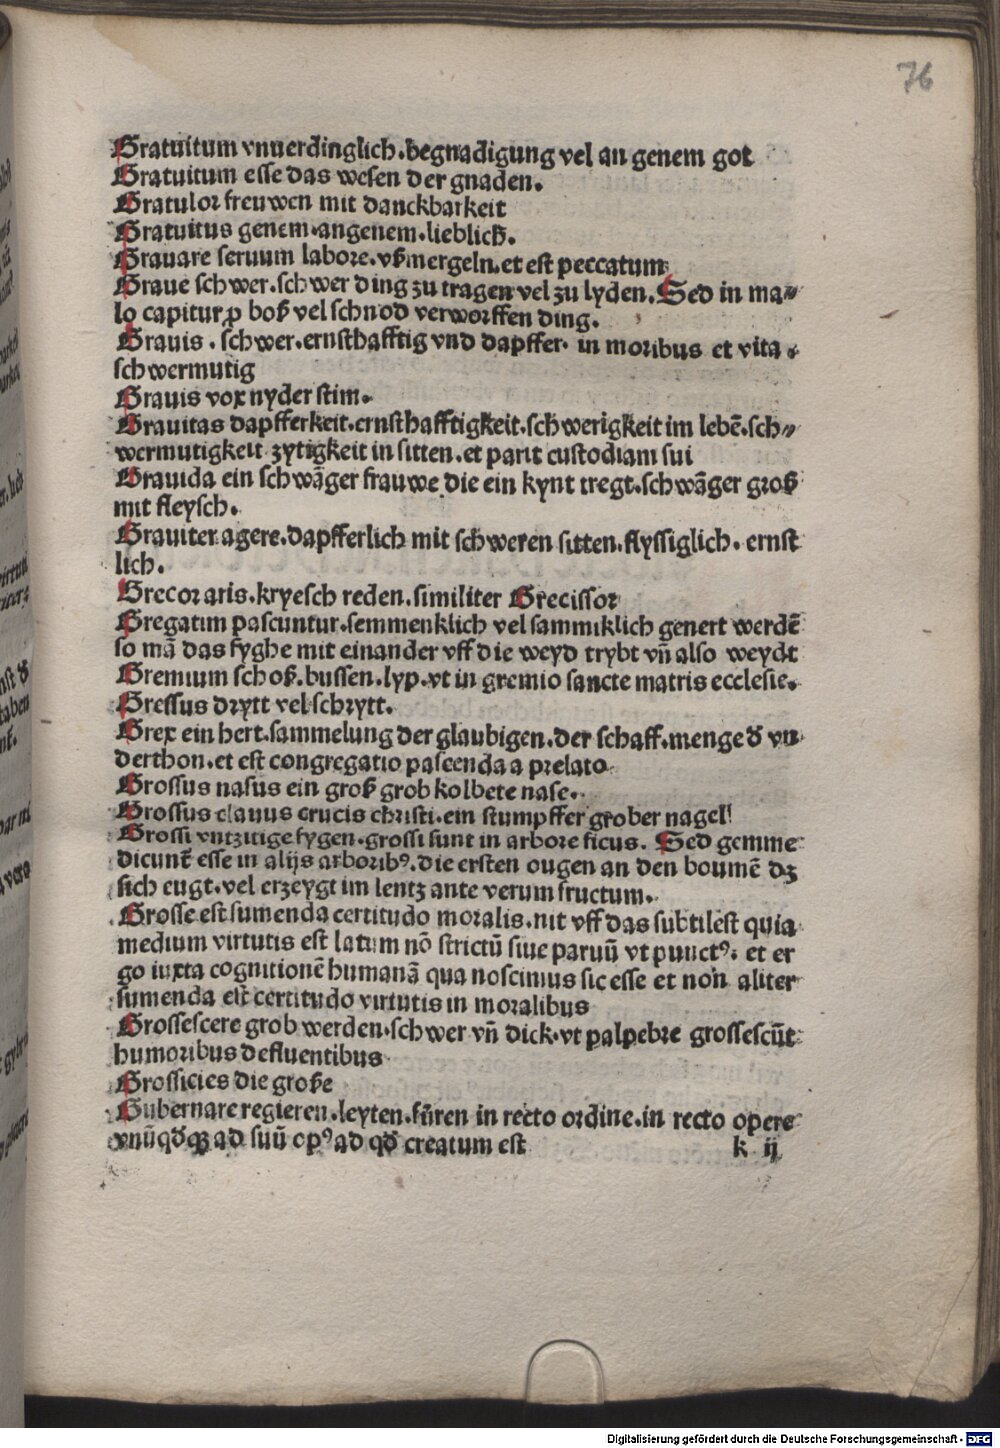 76
Gratuitum vnuerdinglich.begnadigung vel an genem got
Gratuitum esse das wesen der gnaden.
Gratulor freuwen mit danckbarkeit
Gratuitus genem.angenem.lieblich.
Grauare seruum labore.vßmergeln.et est peccatum
Graue schwer.schwer ding zu tragen vel zu lyden.Sed in ma⸗
lo capitur ꝓ boß vel schnod verworffen ding.
Grauis.schwer.ernsthafftig vnd dapffer. in moribus et vita.
schwermutig
Grauis vox nyder stim.
Grauitas dapfferkeit.ernsthafftigkeit.schwerigkeit im lebē.sch⸗
wermutigkeit zytigkeit in sitten.et parit custodiam sui
Grauida ein schwāger frauwe die ein kynt tregt.schwāger groß
mit fleysch.
Grauiter agere.dapfferlich mit schweren sitten.flyssiglich. ernst
lich.
Grecor aris.kryesch reden.similiter Grecissor
Gregatim pascuntur.semmenklich vel sammiklich genert werdē
so mā das fyghe mit einander vff die weyd trybt vñ also weydt
Gremium schoß.bussen.lyp.vt in gremio sancte matris ecclesie.
Gressus drytt vel schrytt.
Grex ein hert.sammelung der glaubigen.der schaff.menge đ vn
derthon.et est congregatio pascenda a prelato
Grossus nasus ein groß grob kolbete nase.
Grossus clauus crucis christi.ein stumpffer grober nagel
Grossi vntzitige fygen.grossi sunt in arbore ficus. Sed gemme
dicunt̄ esse in alijs arborib⁹.die ersten ougen an den boumē dz
sich eugt.vel erzeygt im lentz ante verum fructum.
Grosse est sumenda certitudo moralis.nit vff das subtilest quia
medium virtutis est latum nō strictū siue paruū vt punct⁹: et er
go iuxta cognitionē humanā qua noscimus sic esse et non aliter
sumenda est certitudo virtutis in moralibus
Grossescere grob werden.schwer vñ dick.vt palpebre grossescūt
humoribus defluentibus
Grossicies die große
Gubernare regieren.leyten.fůren in recto ordine.in recto opere
vnūqđqꝫ ad suū op⁹ ad qđ creatum est
k ij
Digitalisierung gefördert durch die Deutsche Forschungsgemeinschaft - DFG